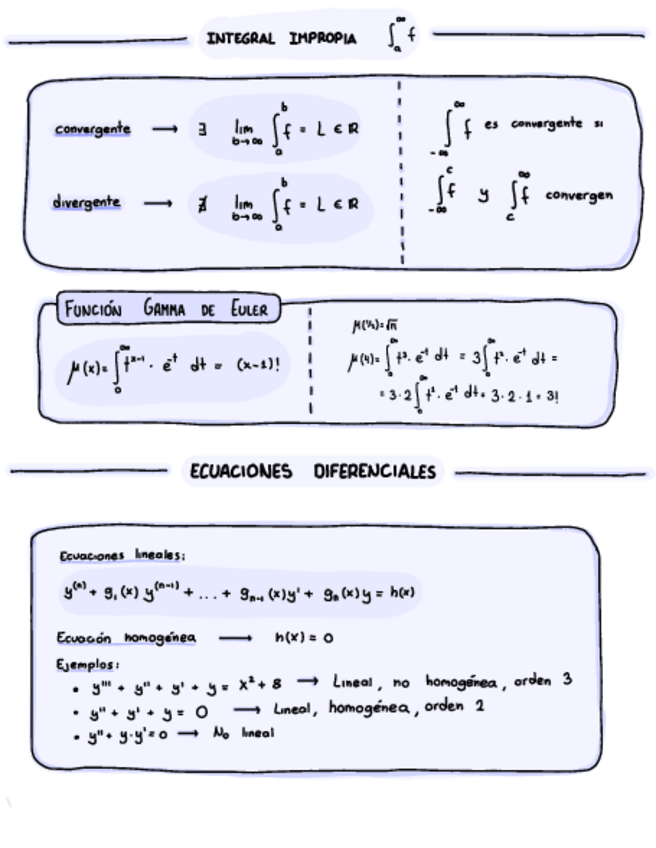 INTEGRAL IMPROPIA ∫ₐ^∞ f
convergente → ∃ lim b→∞ ∫ₐ^b f = L ∈ ℝ
divergente → ∄ lim b→∞ ∫ₐ^b f = L ∈ ℝ
∫_-∞^∞ f es convergente si
∫_-∞^c f y ∫_c^∞ f convergen
FUNCIÓN GAMMA DE EULER
μ(x) = ∫₀^∞ t^(x-1) · e^-t dt = (x-1)!
μ(1/2) = √π
μ(4) = ∫₀^∞ t³ · e^-t dt = 3∫₀^∞ t² · e^-t dt =
= 3·2∫₀^∞ t¹ · e^-t dt = 3·2·1 = 3!
ECUACIONES DIFERENCIALES
Ecuaciones lineales:
y^(n) + g₁(x) y^(n-1) + ... + gₙ₋₁(x)y' + gₙ(x)y = h(x)
Ecuación homogénea → h(x) = 0
Ejemplos:
• y''' + y'' + y' + y = x² + 8 → Lineal, no homogénea, orden 3
• y'' + y' + y = 0 → Lineal, homogénea, orden 2
• y'' + y·y' = 0 → No lineal